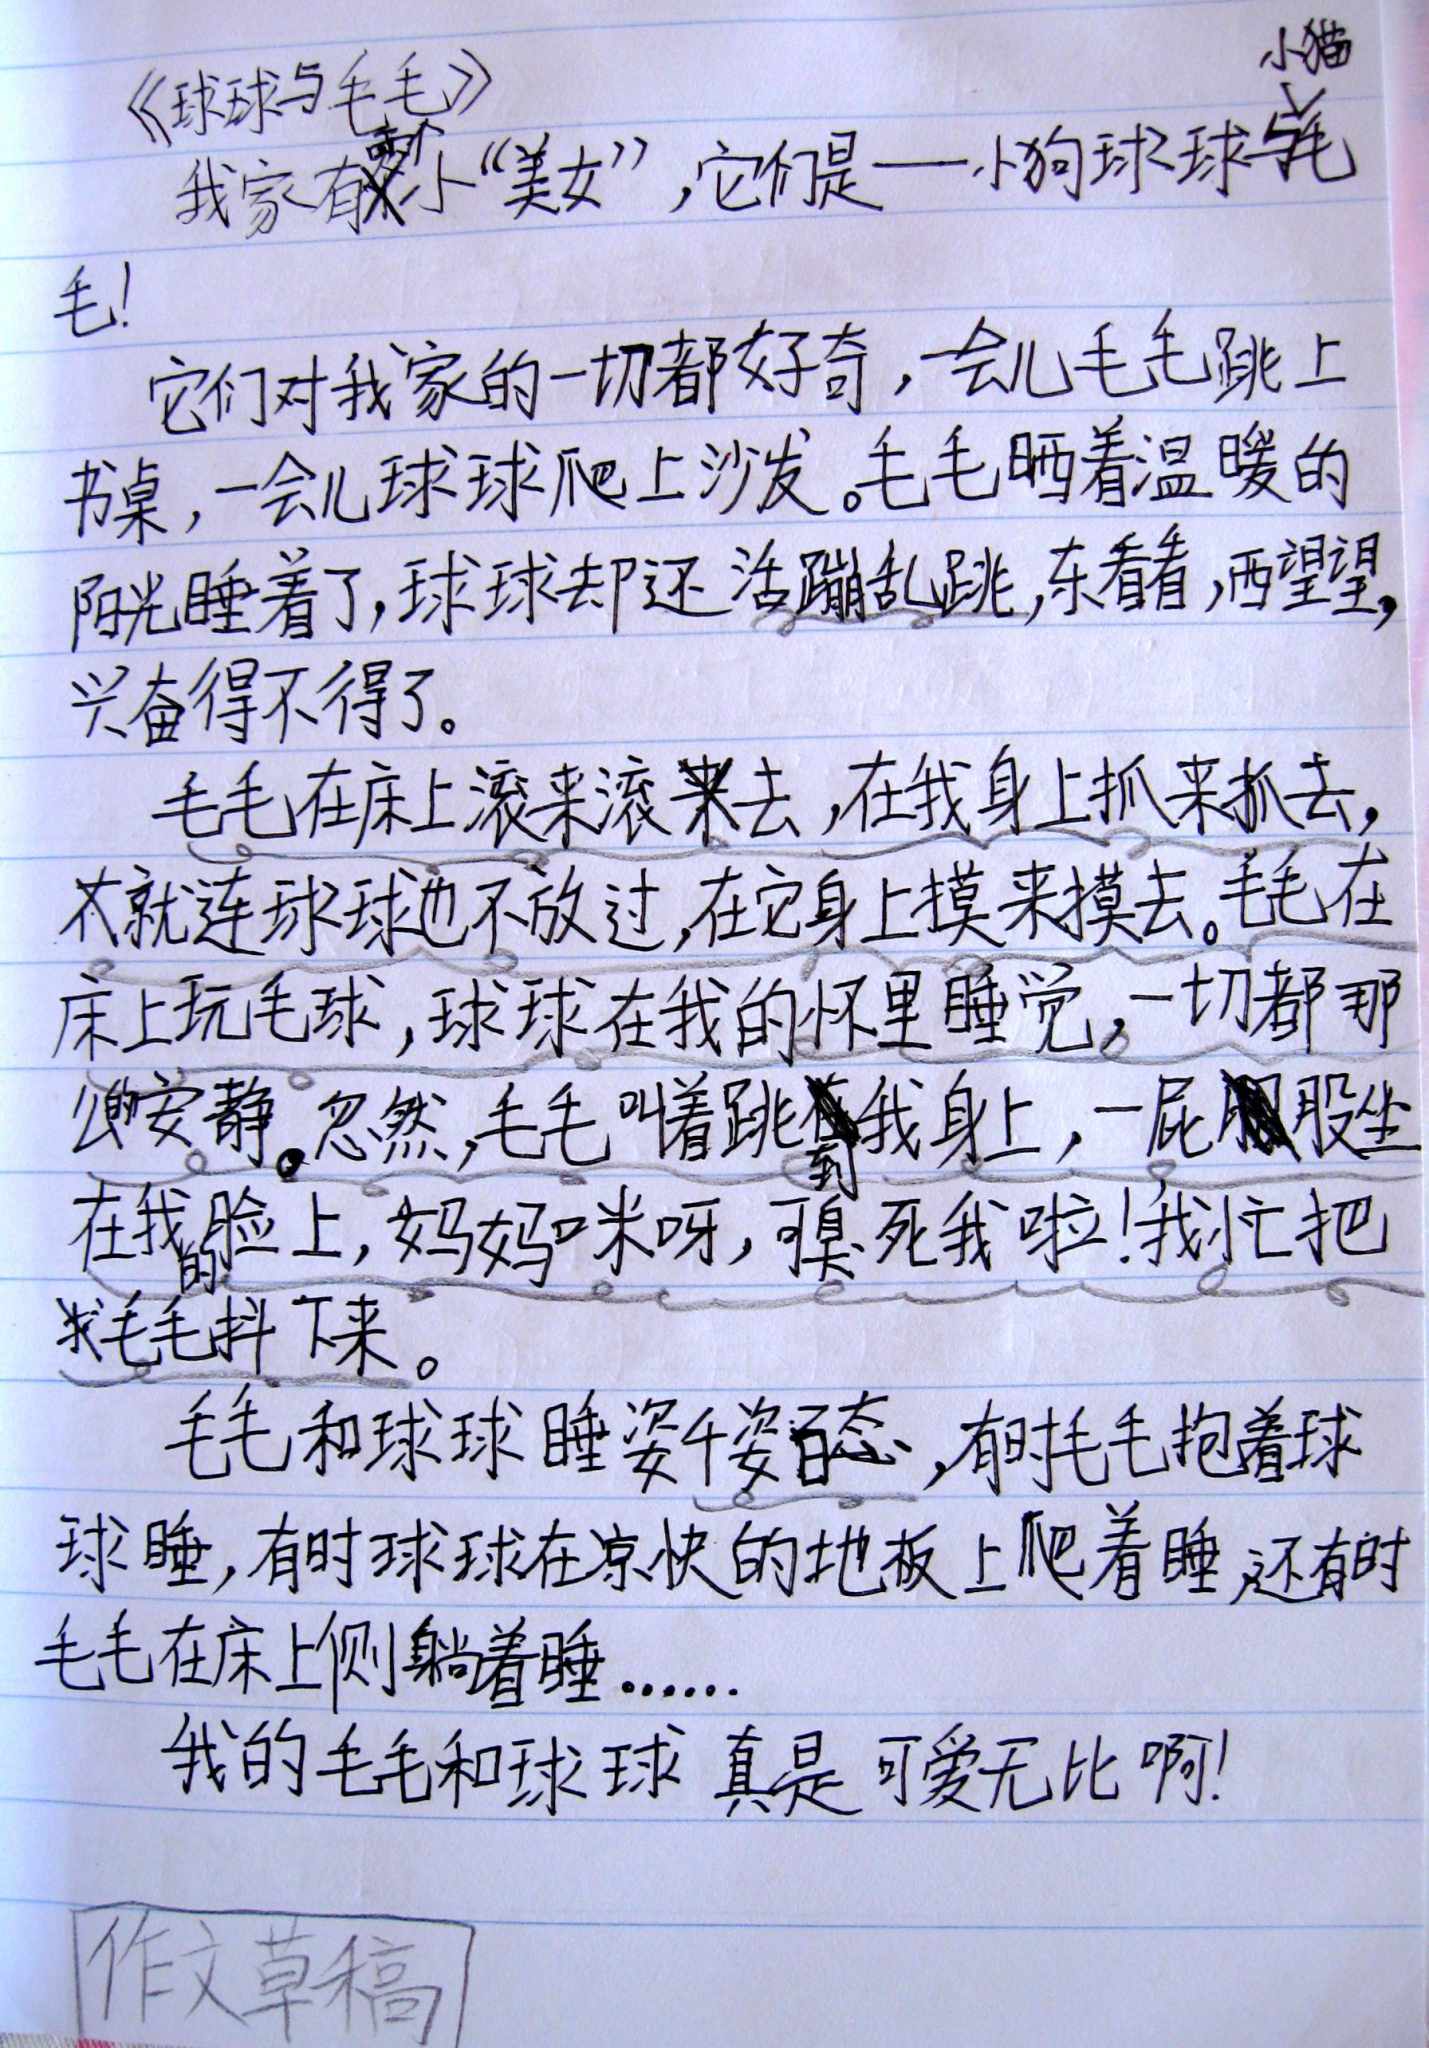 《球球与毛毛》
我家有两个小“美女”，它们是——小狗球球与小猫毛
毛！
它们对我家的一切都好奇，一会儿毛毛跳上
书桌，一会儿球球爬上沙发。毛毛晒着温暖的
阳光睡着了，球球却还活蹦乱跳，东看看，西望望，
兴奋得不得了。
毛毛在床上滚来滚去，在我身上抓来抓去，
就连球球也不放过，在它身上摸来摸去。毛毛在
床上玩毛球，球球在我的怀里睡觉，一切都那
么的安静。忽然，毛毛叫着跳到我身上，一屁股坐
在我的脸上，妈妈咪呀，可臭死我啦！我忙把
毛毛抖下来。
毛毛和球球睡姿千姿百态，有时毛毛抱着球
球睡，有时球球在凉快的地板上爬着睡，还有时
毛毛在床上侧躺着睡……
我的毛毛和球球真是可爱无比啊！
作文草稿